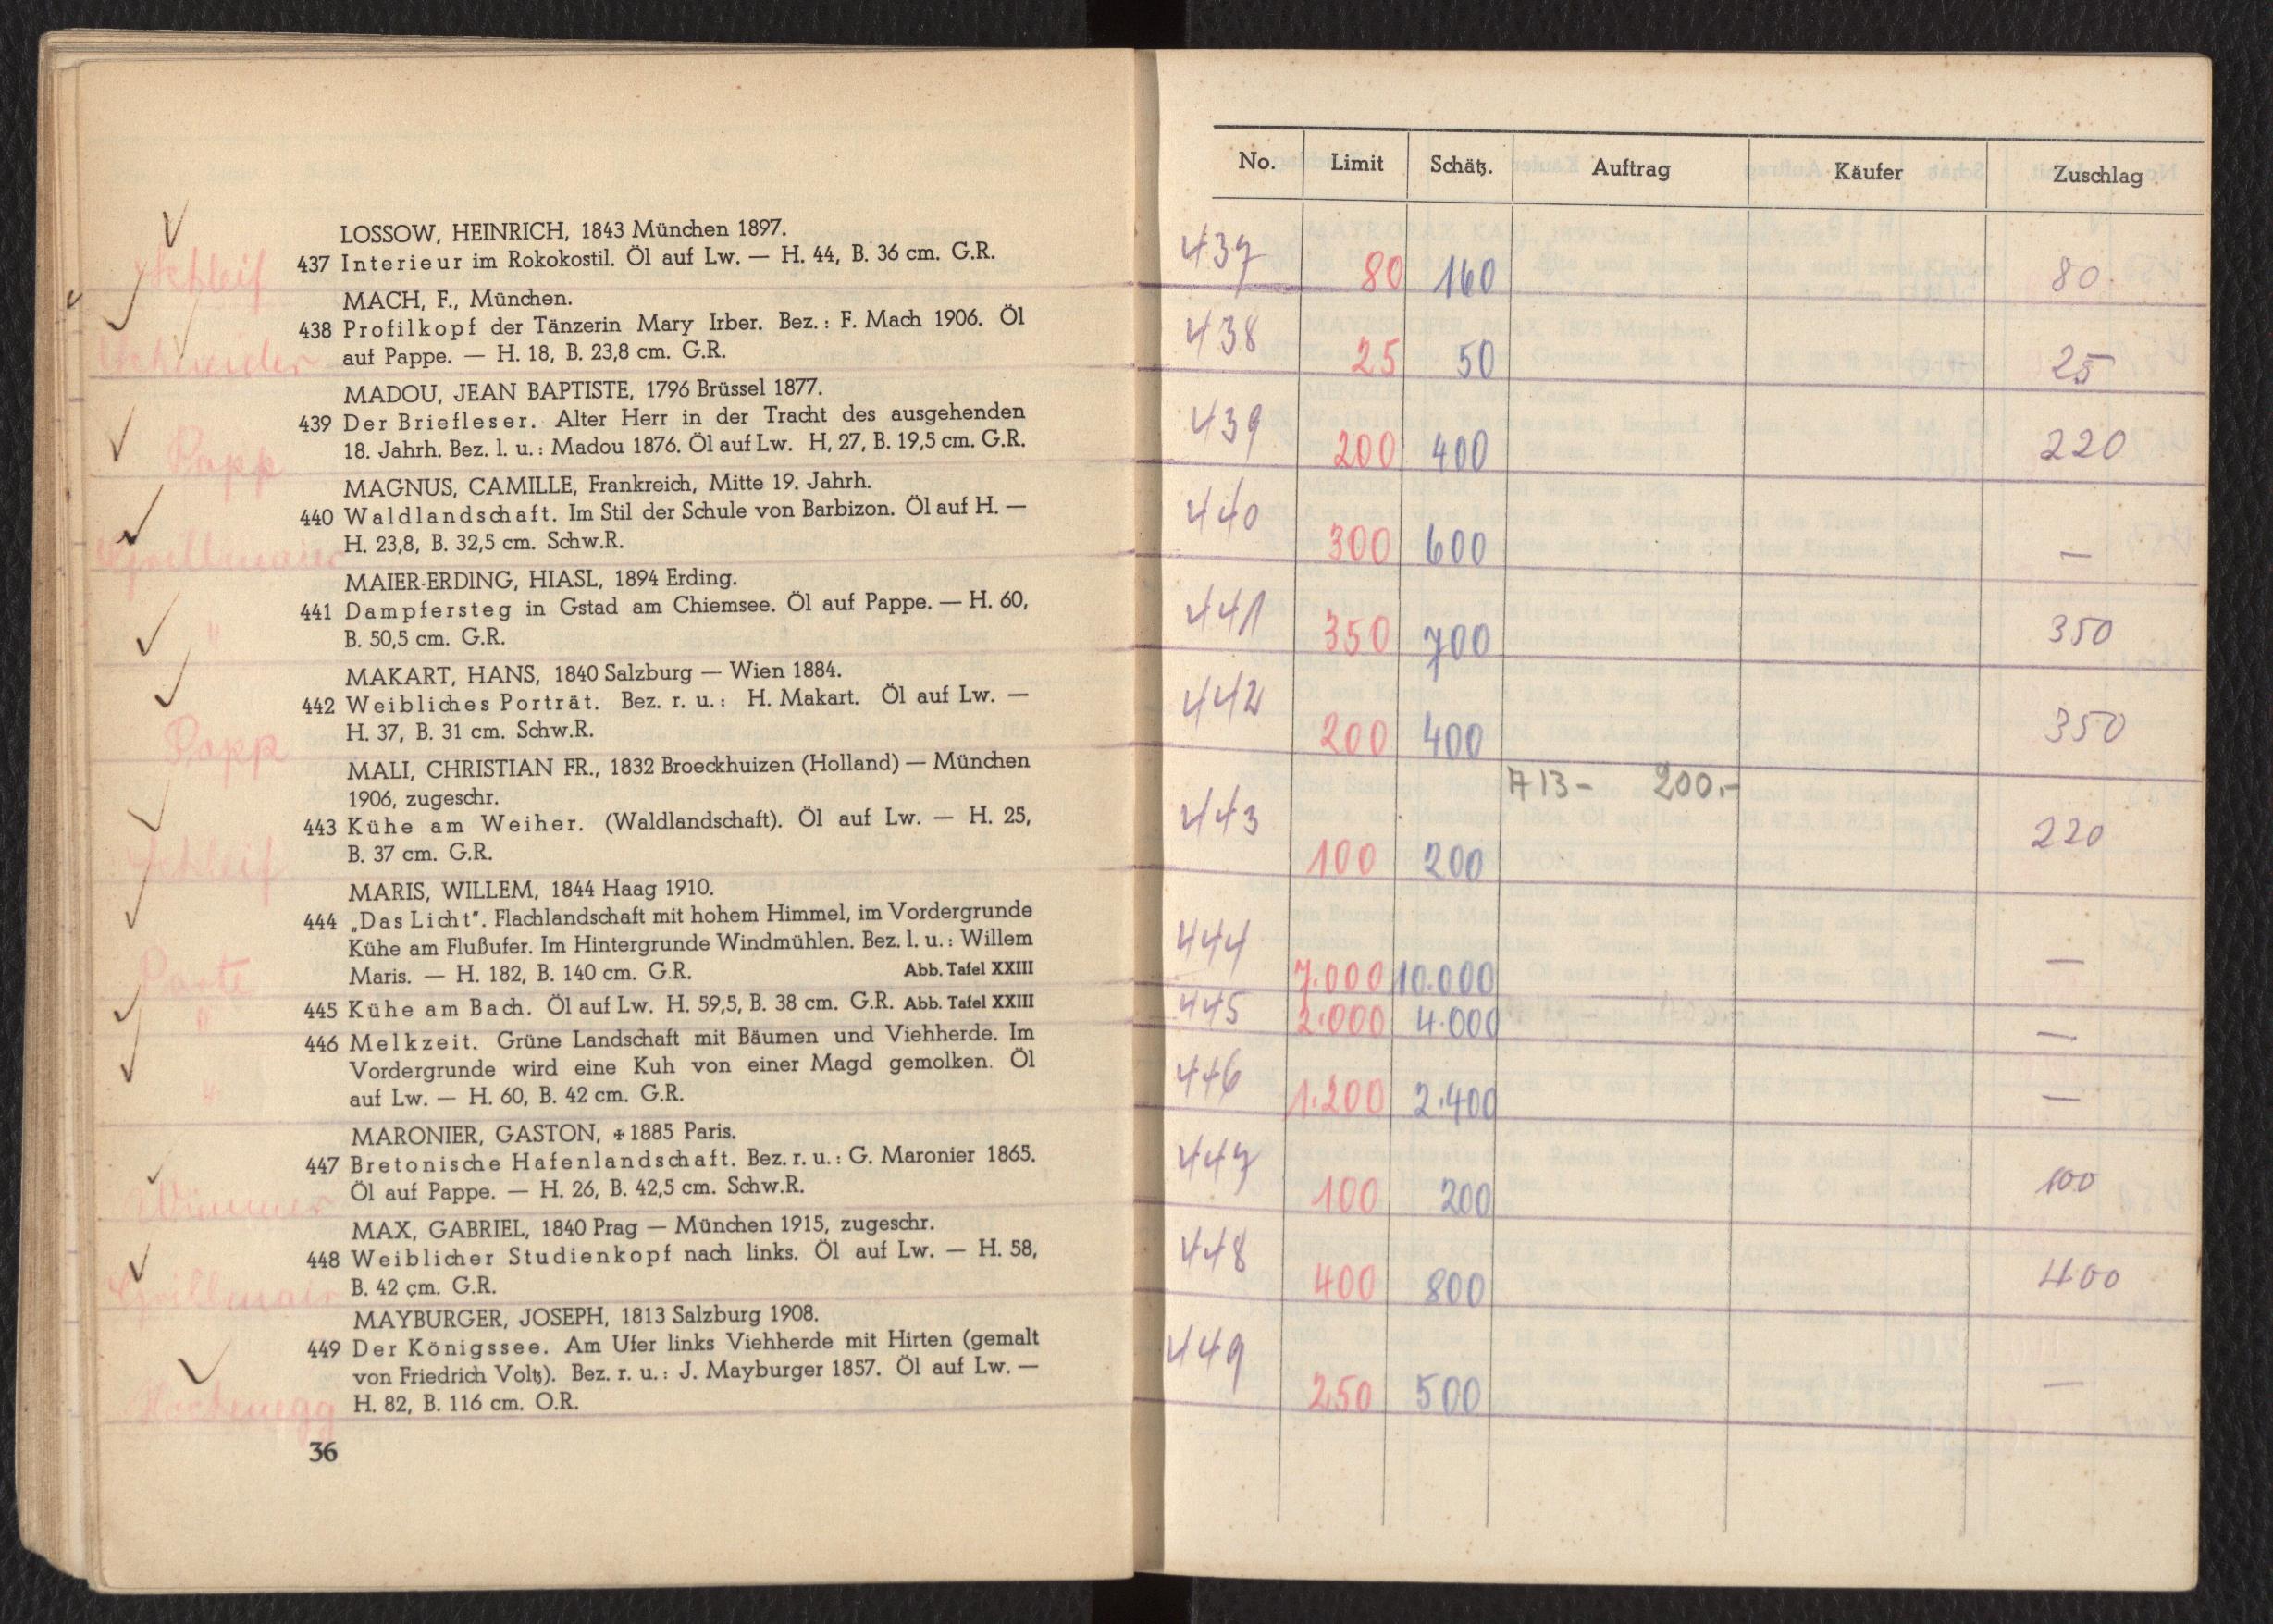 LOSSOW, HEINRICH, 1843 München 1897.
Schleif
437 Interieur im Rokokostil. Öl auf Lw. — H. 44, B. 36 cm. G.R.
MACH, F., München.
438 Profilkopf der Tänzerin Mary Irber. Bez.: F. Mach 1906. Öl
Schneider auf Pappe. — H. 18, B. 23,8 cm. G.R.
MADOU, JEAN BAPTISTE, 1796 Brüssel 1877.
439 Der Briefleser. Alter Herr in der Tracht des ausgehenden
Papp 18. Jahrh. Bez. l. u.: Madou 1876. Öl auf Lw. H, 27, B. 19,5 cm. G.R.
MAGNUS, CAMILLE, Frankreich, Mitte 19. Jahrh.
440 Waldlandschaft. Im Stil der Schule von Barbizon. Öl auf H. —
H. 23,8, B. 32,5 cm. Schw.R.
MAIER-ERDING, HIASL, 1894 Erding.
441 Dampfersteg in Gstad am Chiemsee. Öl auf Pappe. — H. 60,
" B. 50,5 cm. G.R.
MAKART, HANS, 1840 Salzburg — Wien 1884.
442 Weibliches Porträt. Bez. r. u.: H. Makart. Öl auf Lw. —
Papp H. 37, B. 31 cm. Schw.R.
MALI, CHRISTIAN FR., 1832 Broeckhuizen (Holland) — München
1906, zugeschr.
443 Kühe am Weiher. (Waldlandschaft). Öl auf Lw. — H. 25,
Schleif B. 37 cm. G.R.
MARIS, WILLEM, 1844 Haag 1910.
444 „Das Licht“. Flachlandschaft mit hohem Himmel, im Vordergrunde
Kühe am Flußufer. Im Hintergrunde Windmühlen. Bez. l. u.: Willem
Maris. — H. 182, B. 140 cm. G.R. Abb. Tafel XXIII
" 445 Kühe am Bach. Öl auf Lw. H. 59,5, B. 38 cm. G.R. Abb. Tafel XXIII
446 Melkzeit. Grüne Landschaft mit Bäumen und Viehherde. Im
Vordergrunde wird eine Kuh von einer Magd gemolken. Öl
" auf Lw. — H. 60, B. 42 cm. G.R.
MARONIER, GASTON, ✠ 1885 Paris.
447 Bretonische Hafenlandschaft. Bez. r. u.: G. Maronier 1865.
Wimmer Öl auf Pappe. — H. 26, B. 42,5 cm. Schw.R.
MAX, GABRIEL, 1840 Prag — München 1915, zugeschr.
448 Weiblicher Studienkopf nach links. Öl auf Lw. — H. 58,
B. 42 cm. G.R.
MAYBURGER, JOSEPH, 1813 Salzburg 1908.
449 Der Königssee. Am Ufer links Viehherde mit Hirten (gemalt
von Friedrich Voltz). Bez. r. u.: J. Mayburger 1857. Öl auf Lw. —
H. 82, B. 116 cm. O.R.
36
No. Limit Schätz. Auftrag Käufer Zuschlag
437 80 160 80.
438 25 50 25
439 200 400 220
440 300 600 —
441 350 700 350
442 200 400 350
A 13 - 200.-
443 100 200 220
444 7.000 10.000 —
445 2.000 4.000 —
446 1.200 2.400 —
447 100 200 100
448 400 800 400
449 250 500 —